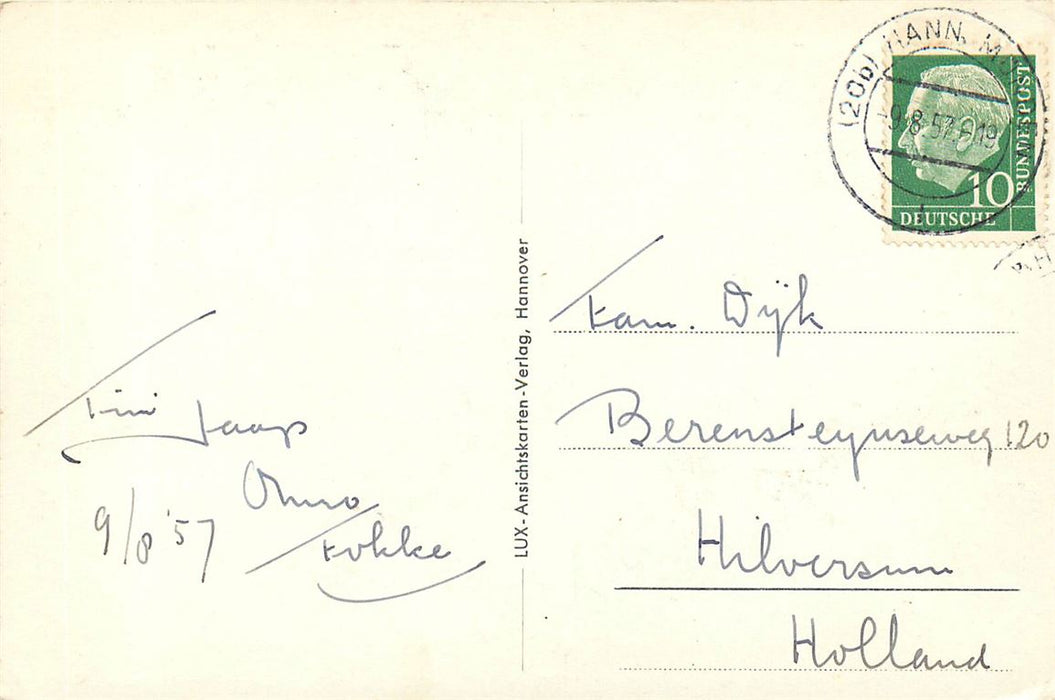 (20b) HANN. M
-9.8.57.-19
10
DEUTSCHE
BUNDESPOST
LUX-Ansichtskarten-Verlag, Hannover
Fam. Dijk
Berensteynseweg 120
Hilversum
Holland
Jaap
Onno
Fokke
9/8 '57